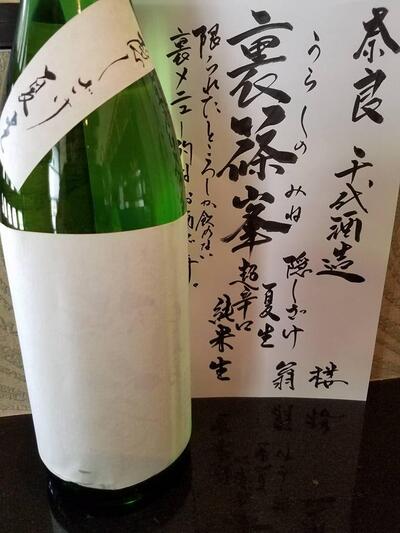 奈良 千代酒造
うらしのみね
裏篠峯
隠しざけ
夏生
超辛口
純米生
限られたところしか飲めない
裏メニュー的なお酒です。
翁 楼
隠しざけ 夏生